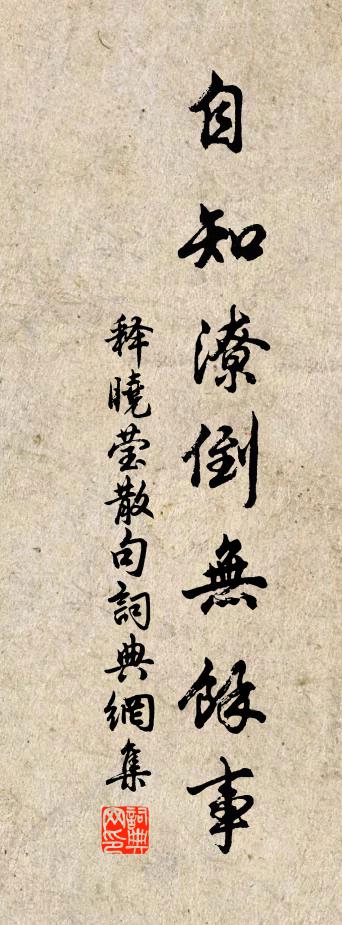 自知潦倒無餘事
释曉莹散句詞典網集
詞典网印